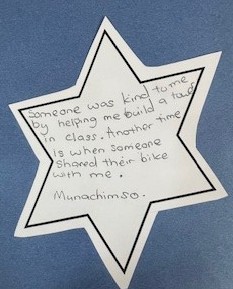 Someone was kind to me
by helping me build a
in class. Another time
is when someone
shared their bike
with me.
Munachimso.